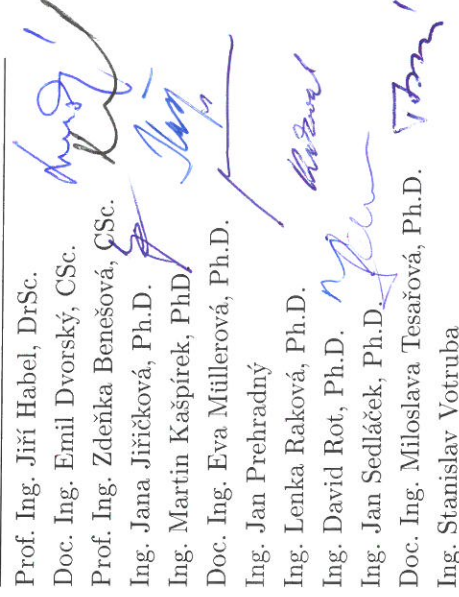 Prof. Ing. Jiří Habel, DrSc.
Doc. Ing. Emil Dvorský, CSc.
Prof. Ing. Zdeňka Benešová, CSc.
Ing. Jana Jiřičková, Ph.D.
Ing. Martin Kašpírek, PhD.
Doc. Ing. Eva Müllerová, Ph.D.
Ing. Jan Prehradný
Ing. Lenka Raková, Ph.D.
Ing. David Rot, Ph.D.
Ing. Jan Sedláček, Ph.D.
Doc. Ing. Miloslava Tesařová, Ph.D.
Ing. Stanislav Votruba